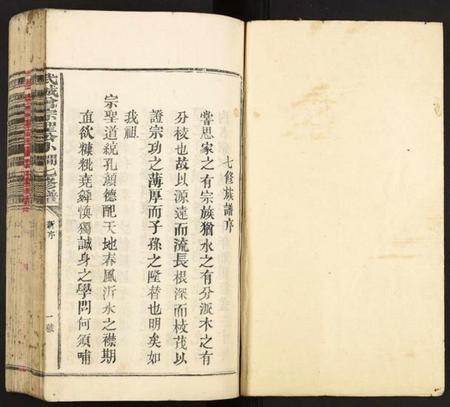 七修族譜序
嘗思家之有宗族猶水之有分派木之有
分枝也故以源遠而流長根深而枝茂以
證宗功之薄厚而子孫之隆替也明矣如
我祖
宗聖道統孔顏德配天地春風沂水之襟期
直欲糠粃堯舜慎獨誠身之學問何須哺
新序
一號